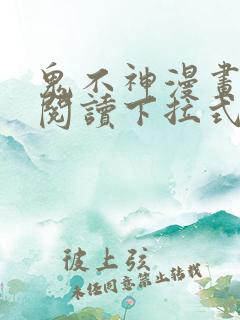 鬼不神漫畫
閱讀下拉式
彼上弦
未任同意禁止轉載